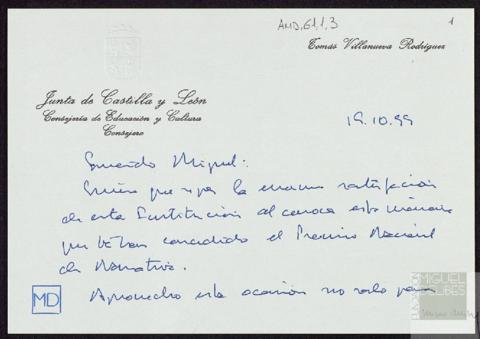 AMD,61,1,3
1
Tomás Villanueva Rodríguez
Junta de Castilla y León
Consejería de Educación y Cultura
Consejero
19.10.99
Querido Miguel:
Quiero que sepas la enorme satisfacción
de esta Institución al conocer esta mañana
que te han concedido el Premio Nacional
de Narrativa.
Aprovecho esta ocasión no solo para
MD
FUNDACIÓN
MIGUEL
DELIBES